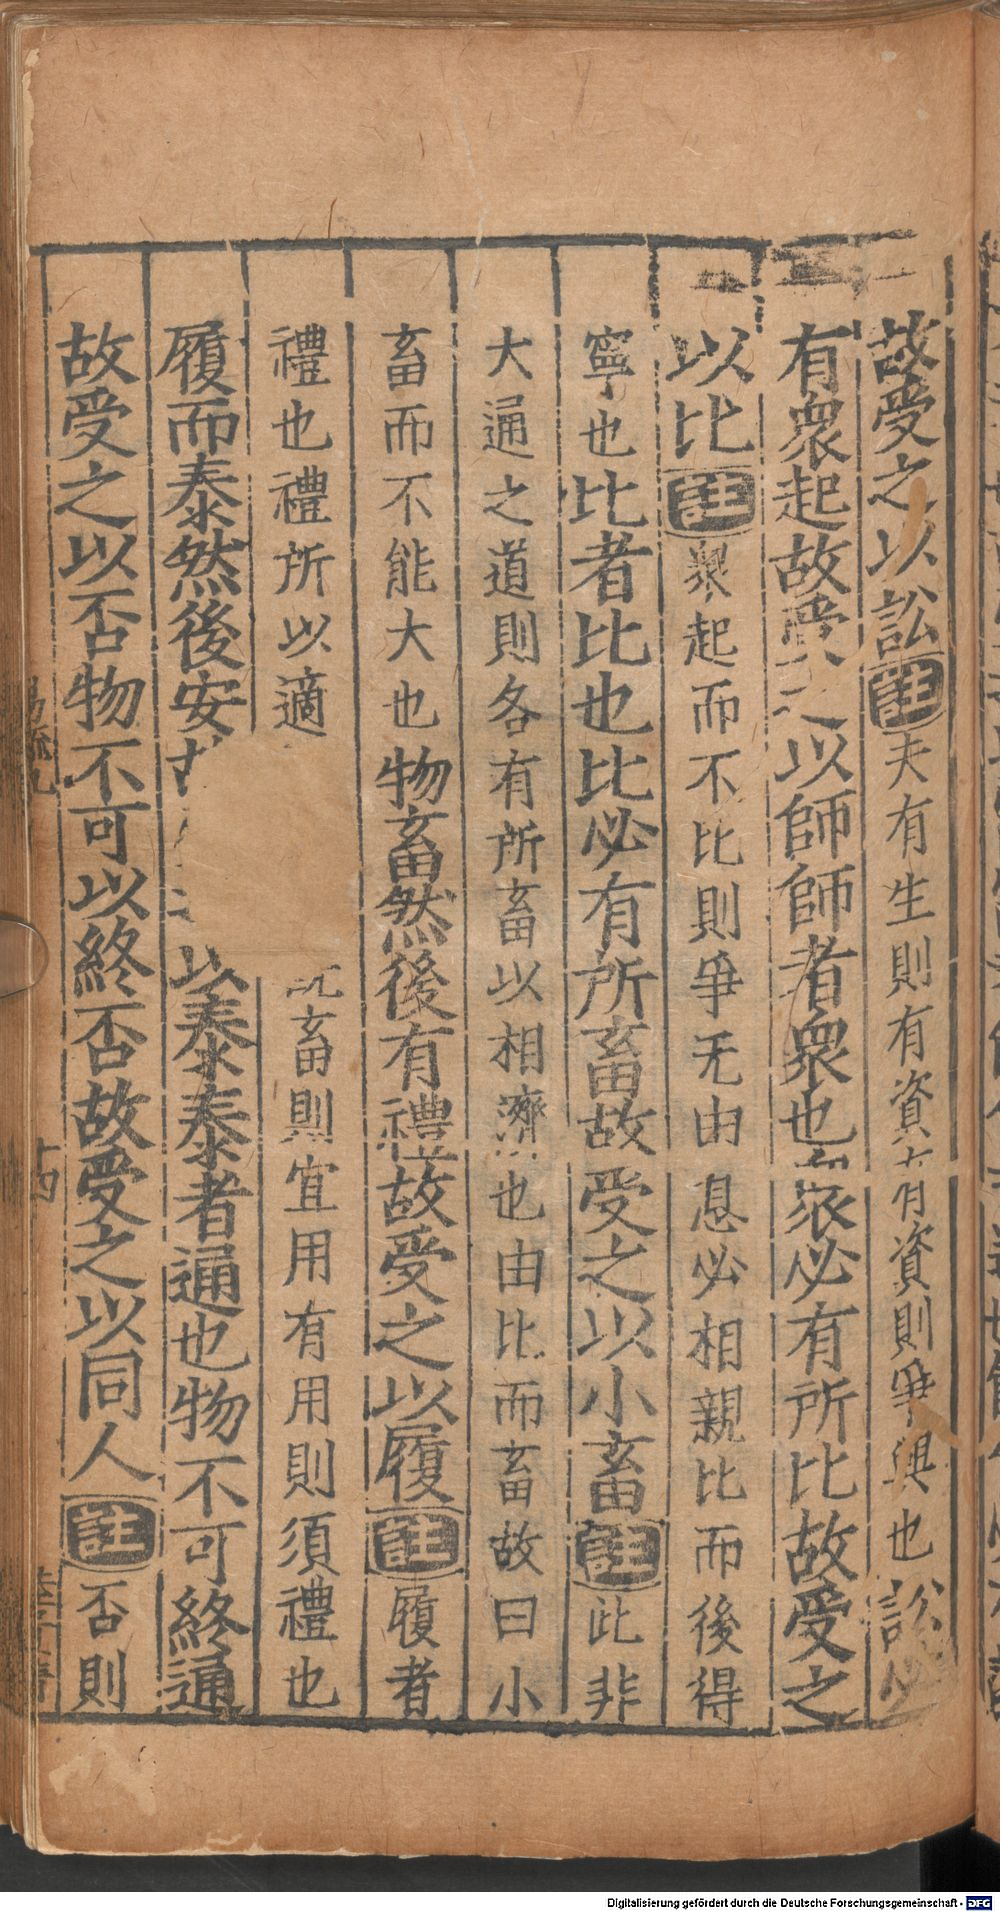 故受之以訟註夫有生則有資有資則爭興也訟必
有衆起故受之以師師者衆也衆必有所比故受之
以比註衆起而不比則爭无由息必相親比而後得
寧也比者比也比必有所畜故受之以小畜註此非
大通之道則各有所畜以相濟也由比而畜故曰小
畜而不能大也物畜然後有禮故受之以履註履者
禮也禮所以適 既畜則宜用有用則須禮也
履而泰然後安 以泰泰者通也物不可終通
故受之以否物不可以終否故受之以同人註否則
十四
Digitalisierung gefördert durch die Deutsche Forschungsgemeinschaft - DFG